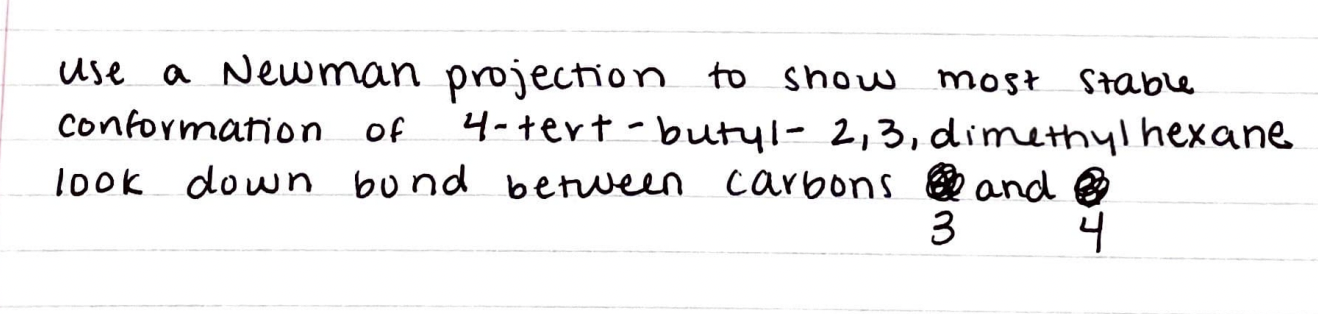 use a Newman projection to show most stable
conformation of 4-tert-butyl-2,3,dimethylhexane
look down bond between carbons and
3 4